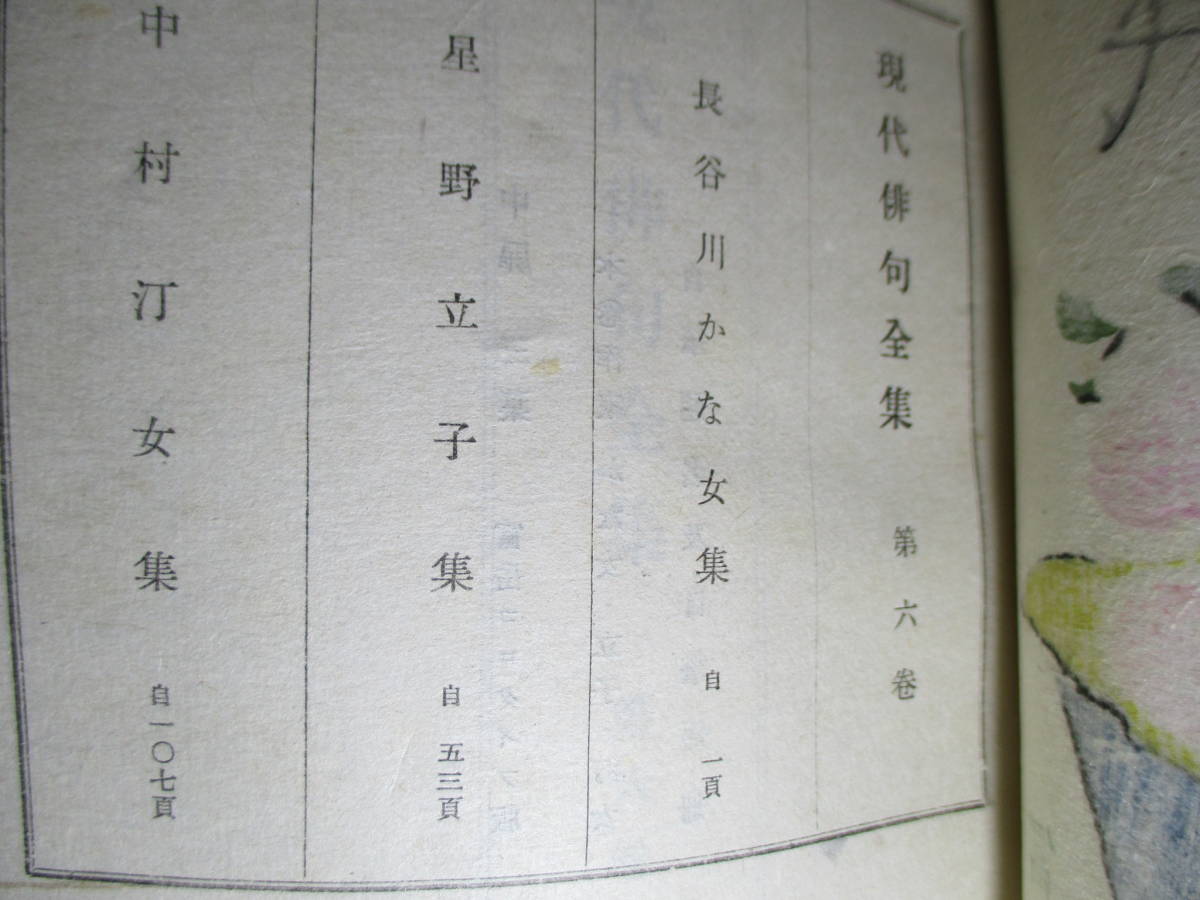 現代俳句全集 第六卷
長谷川かな女集 自 一頁
星野立子集 自 五三頁
中村汀女集 自一〇七頁